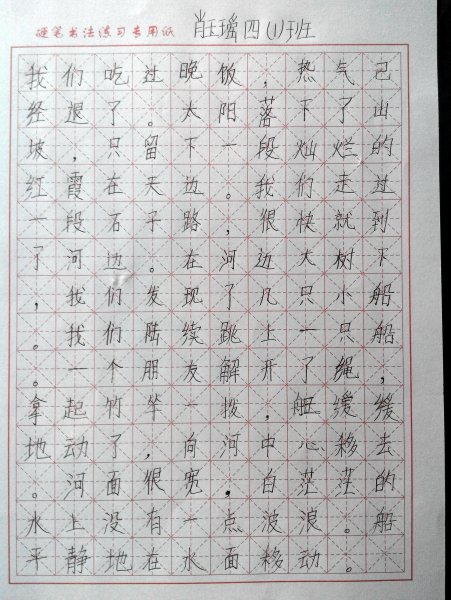 硬笔书法练习专用纸 肖珏瑶四(1)班
我们吃过晚饭，热气已
经退了。太阳落下了山
坡，只留下一段灿烂的
红霞在天边。我们走过
一段石子路，很快就到
了河边。在河边大树下
，我们发现了几只小船
。我们陆续跳上一只船
。一个朋友解开了绳，
拿起竹竿一拨，船缓缓
地动了，向河中心移去
。河面很宽，白茫茫的
水上没有一点波浪。船
平静地在水面移动。